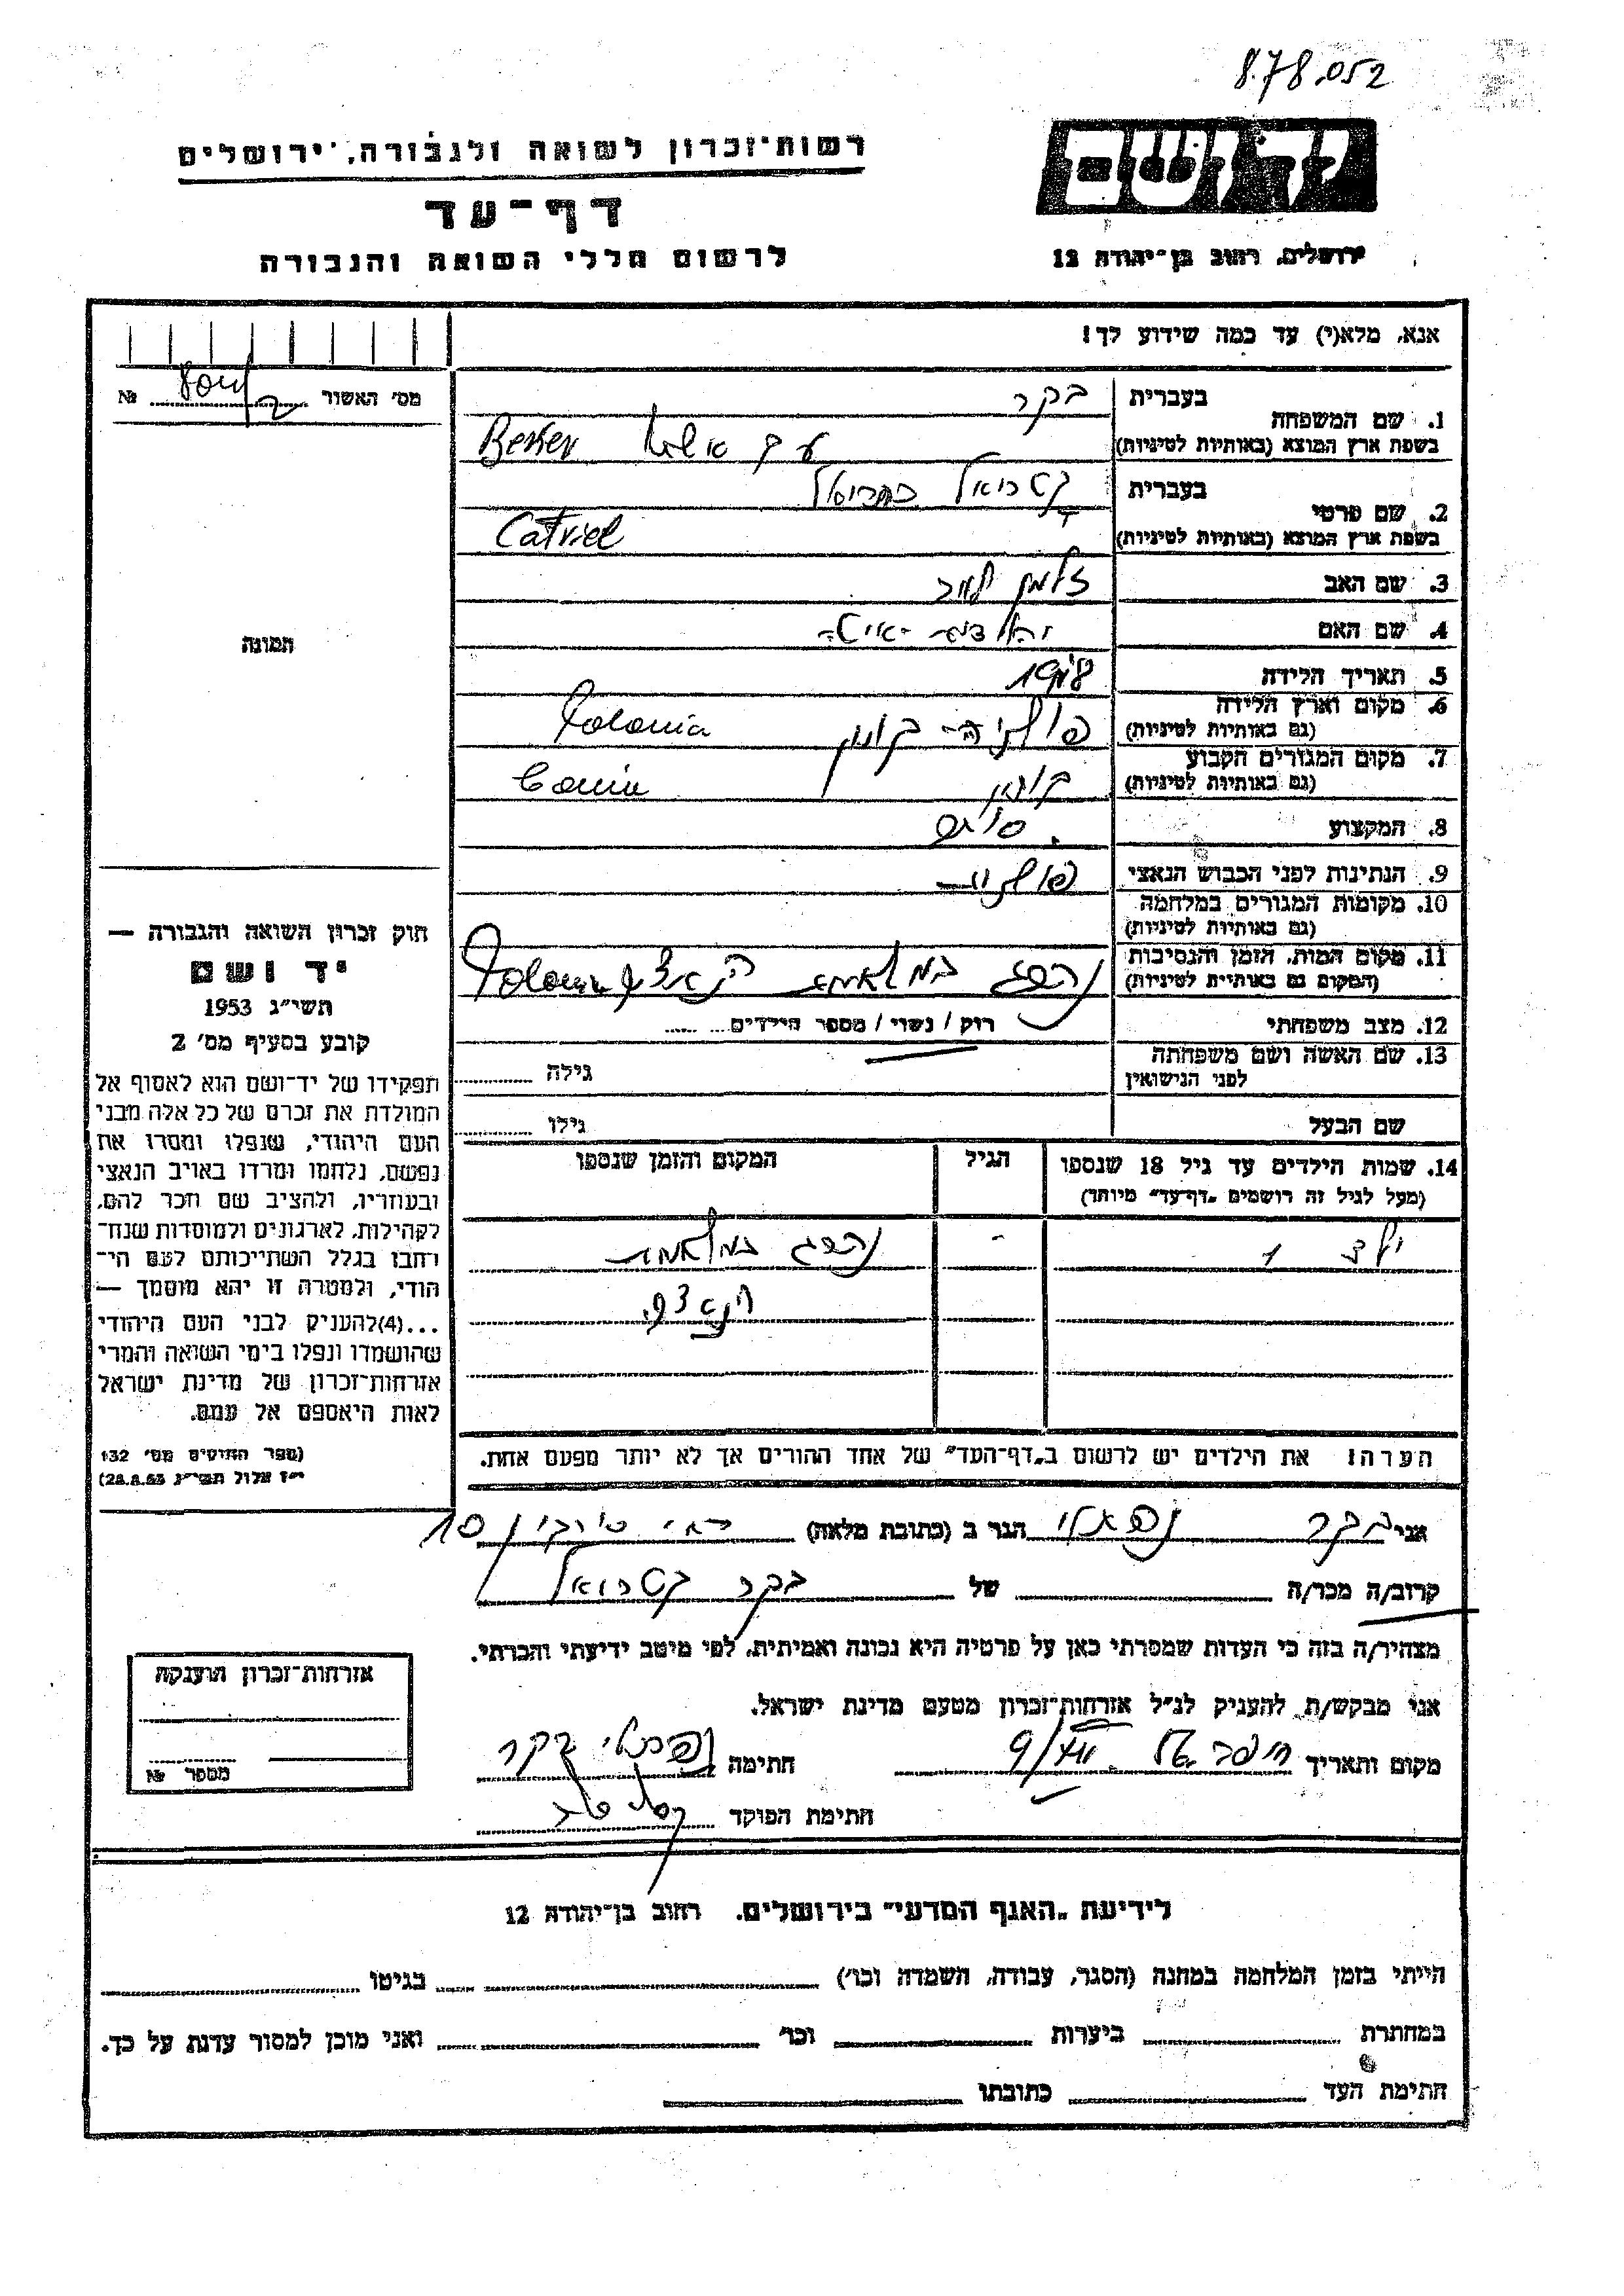 8.78.052
רשות־זכרון לשואה ולגבורה, ירושלים
דף־עד
לרשום חללי השואה והגבורה
יד ושם
ירושלים, רחוב בן־יהודה 12
אנא, מלא(י) עד כמה שידוע לך!
מס' האשור №
1. שם המשפחה בעברית בקר
בשפת ארץ המוצא (באותיות לטיניות) Becker
2. שם פרטי בעברית קטריאל
בשפת ארץ המוצא (באותיות לטיניות) Catriel
3. שם האב זלמן
4. שם האם
5. תאריך הלידה
6. מקום וארץ הלידה (גם באותיות לטיניות) פולניה - קונין Polonia
7. מקום המגורים הקבוע (גם באותיות לטיניות) קונין Conin
8. המקצוע
9. הנתינות לפני הכבוש הנאצי פולנית
10. מקומות המגורים במלחמה (גם באותיות לטיניות)
11. מקום המות, הזמן והנסיבות (המקום גם באותיות לטיניות) נהרג במלחמה הנאצית Polonia
12. מצב משפחתי רוק / נשוי / מספר הילדים
13. שם האשה ושם משפחתה לפני הנישואין גילה
שם הבעל גילו
14. שמות הילדים עד גיל 18 שנספו הגיל המקום והזמן שנספו
(מעל לגיל זה רושמים „דף־עד" מיוחד)
ילד 1 - נהרג במלחמה
הנאצית
הערה: את הילדים יש לרשום ב„דף־העד" של אחד ההורים אך לא יותר מפעם אחת.
תמונה
חוק זכרון השואה והגבורה —
יד ושם
תשי״ג 1953
קובע בסעיף מס' 2
תפקידו של יד־ושם הוא לאסוף אל
המולדת את זכרם של כל אלה מבני
העם היהודי, שנפלו ומסרו את
נפשם, נלחמו ומרדו באויב הנאצי
ובעוזריו, ולהציב שם וזכר להם,
לקהילות, לארגונים ולמוסדות שנח־
רבו בגלל השתייכותם לעם הי־
הודי, ולמטרה זו יהא מוסמך —
...(4)להעניק לבני העם היהודי
שהושמדו ונפלו בימי השואה והמרי
אזרחות־זכרון של מדינת ישראל
לאות היאספם אל עמם.
(ספר החוקים מס' 132
י״ז אלול תשי״ג 28.8.53)
אני בקר נפתלי הגר ב (כתובת מלאה) 10
קרוב/ה מכר/ה של בקר קטריאל
מצהיר/ה בזה כי העדות שמסרתי כאן על פרטיה היא נכונה ואמיתית, לפי מיטב ידיעתי והכרתי.
אני מבקש/ת להעניק לנ״ל אזרחות־זכרון מטעם מדינת ישראל.
מקום ותאריך חתימה נפתלי בקר
חתימת הפוקד
אזרחות־זכרון הוענקה
מספר №
לידיעת „האגף המדעי" בירושלים, רחוב בן־יהודה 12
הייתי בזמן המלחמה במחנה (הסגר, עבודה, השמדה וכו') בגיטו
במחתרת ביערות וכו' ואני מוכן למסור עדות על כך.
חתימת העד כתובתו